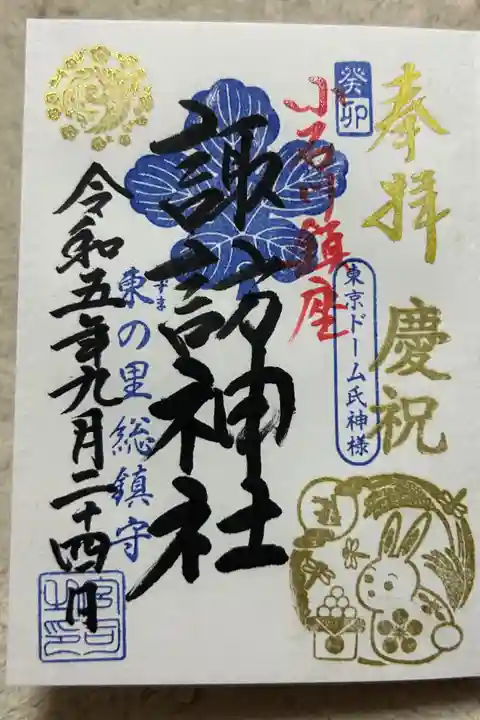 奉拝
慶祝
癸卯
東京ドーム氏神様
小石川鎮座
諏訪神社
東の里総鎮守
令和五年九月二十四日
宮司之印